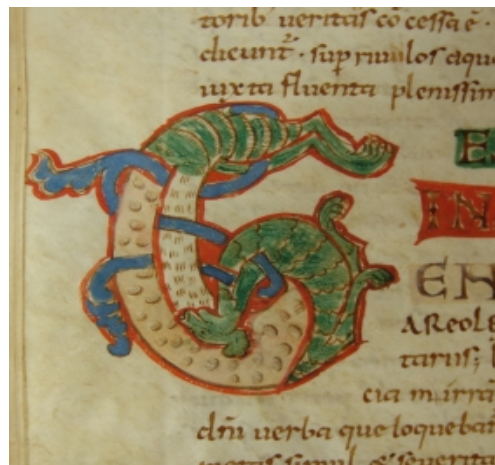 torib; veritas co cessa ē ·
dicunt᷑ · sup riuulos aqu
iuxta fluenta plenissim
E
IN
EN
AReole
tarus;
cia mirra
dñi uerba que loquebat
simul & seuerita